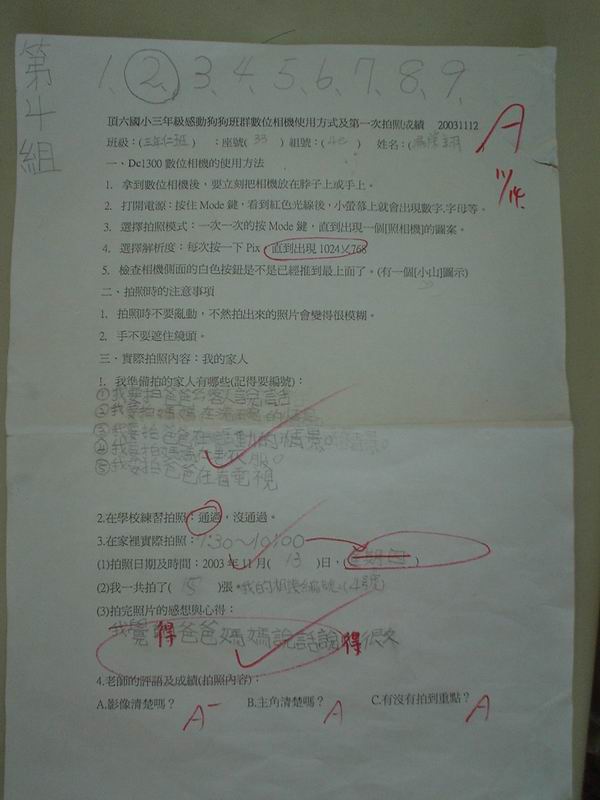 第4組
1、2、3、4、5、6、7、8、9、
頂六國小三年級感動狗狗班群數位相機使用方式及第一次拍照成績 20031112
A
11/14
班級：(三年仁班) ：座號( 33 ) 組號：( ) 姓名：( )
一、Dc1300 數位相機的使用方法
1. 拿到數位相機後，要立刻把相機放在脖子上或手上。
2. 打開電源：按住 Mode 鍵，看到紅色光線後，小螢幕上就會出現數字.字母等。
3. 選擇拍照模式：一次一次的按 Mode 鍵，直到出現一個[照相機]的圖案。
4. 選擇解析度：每次按一下 Pix 直到出現 1024×768
5. 檢查相機側面的白色按鈕是不是已經推到最上面了。(有一個[小山]圖示)
二、拍照時的注意事項
1. 拍照時不要亂動，不然拍出來的照片會變得很模糊。
2. 手不要遮住鏡頭。
三、實際拍照內容：我的家人
1. 我準備拍的家人有哪些(記得要編號)：
①我要拍爸爸和客人說話
②我要拍媽媽在洗碗的情景
③我要拍爸爸在運動的情景。
④我要拍媽媽在 衣服。
⑤我要拍爸爸在看電視
2.在學校練習拍照：通過，沒通過。
3.在家裡實際拍照：7:30～10:00
(1)拍照日期及時間：2003 年 11 月( 13 )日，(星期四)
(2)我一共拍了( 15 )張，我的相機編號：(4號)
(3)拍完照片的感想與心得：
我覺得爸爸媽媽說話說得很久
4.老師的評語及成績(拍照內容)：
A.影像清楚嗎？ B.主角清楚嗎？ C.有沒有拍到重點？
A- A A